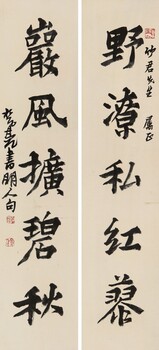 妙君先生 屬正
野潦私紅蓼
巖風擴碧秋
書明人句